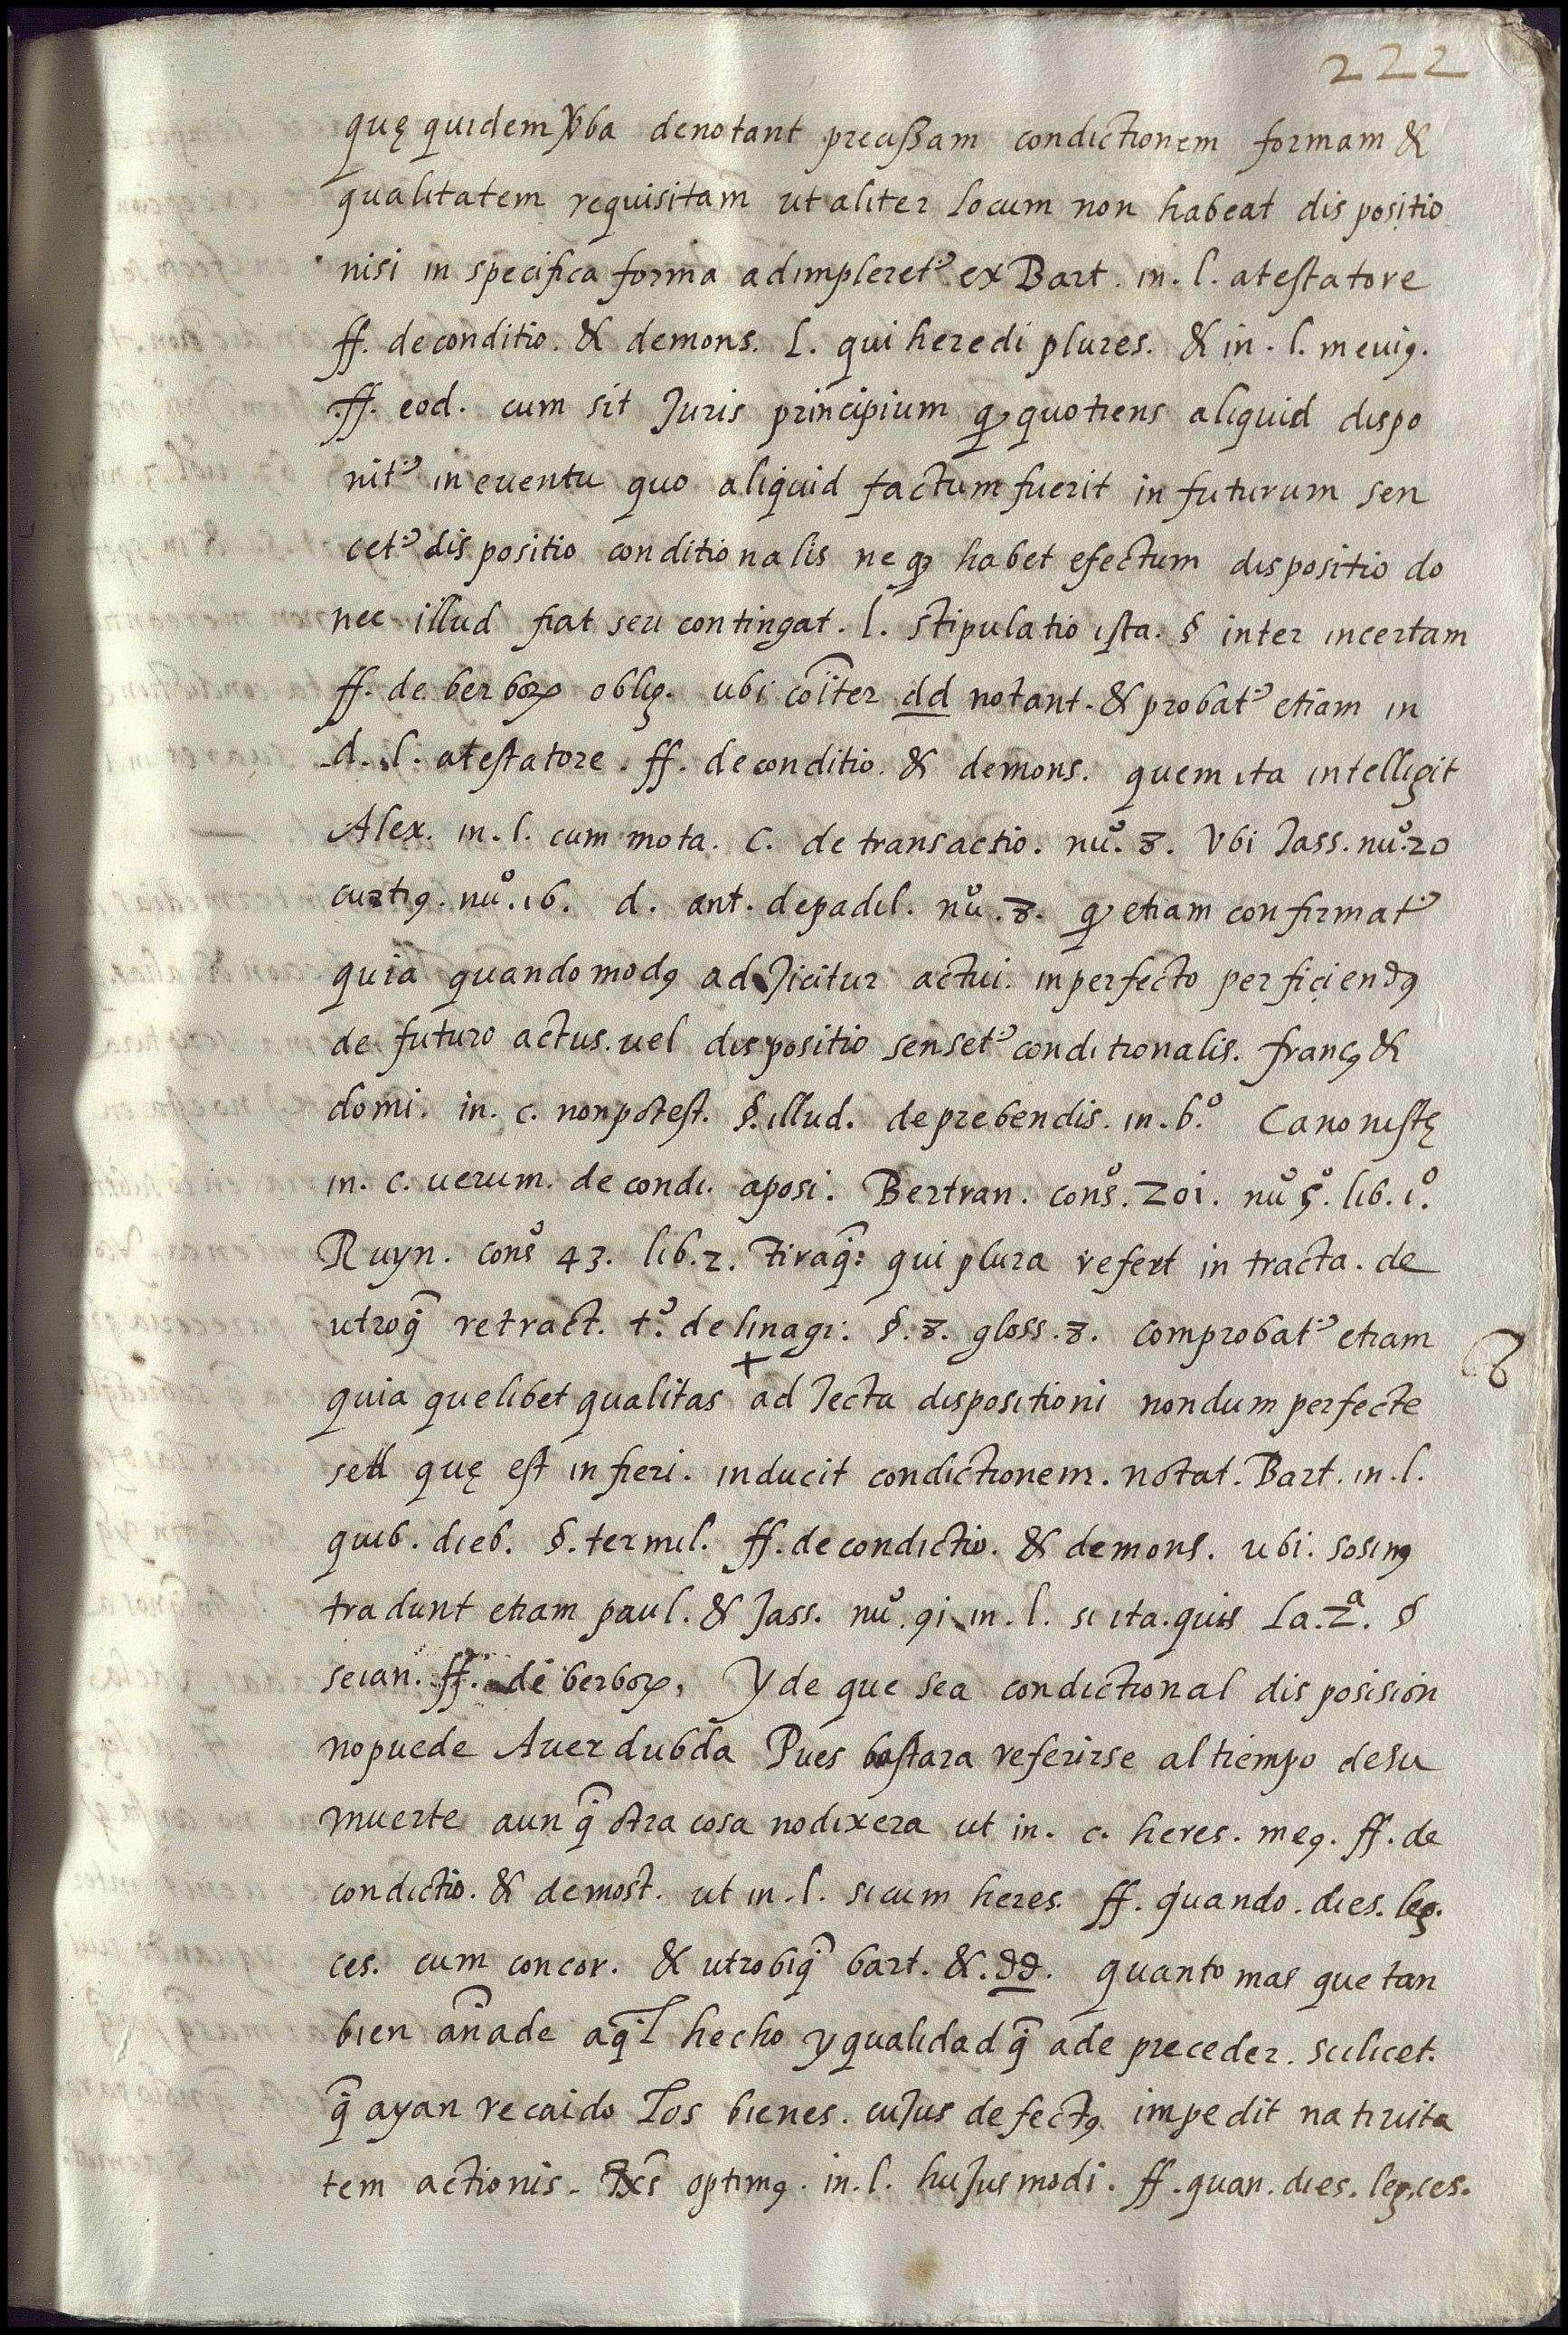 222
quę quidem v̄ba denotant precissam condictionem formam &
qualitatem requisitam ut aliter locum non habeat dispositio
nisi in specifica forma adimpleret᷒ ex Bart. in. l. a testatore
ff. de conditio. & demons. l. qui heredi plures. & in. l. meuiꝰ.
ff. eod. cum sit Juris principium qꝫ quotiens aliquid dispo
nit᷒ in euentu quo aliquid factum fuerit in futurum sen
cet᷒ dispositio conditionalis neqꝫ habet efectum dispositio do
nec illud fiat seu contingat. l. stipulatio ista. § inter incertam
ff. de berboꝝ oblig. ubi coīter dd notant. & probat᷒ etiam in
d. l. a testatore. ff. de conditio. & demons. quem ita intelligit
Alex. in. l. cum mota. C. de transactio. nuº. 8. Vbi Jass. nuº. 20
curtiꝰ. nuº. 16. d. ant. de padil. nuº. 8. qꝫ etiam confirmat᷒
quia quando modꝰ adJicitur actui. inperfecto perficiendꝰ
de futuro actus. uel dispositio senset᷒ conditionalis. francꝰ &
domi. in. c. non potest. §. illud. de prebendis. in. bº. Canonistę
in. c. uerum. de condi. aposi. Bertran. consº. 201. nuº 5. lib. 1º.
Ruyn. consº 43. lib. 2. tiraq̄: qui plura refert in tracta. de
utroq̄ retract. tº. de linagi: §. 8. gloss. 8. comprobat᷒ etiam
quia quelibet qualitas + adJecta dispositioni nondum perfecte
sed quę est in fieri. inducit condictionem. notat. Bart. in. l.
quib. dieb. §. termil. ff. de condictio. & demons. ubi. sosinꝰ
tradunt etiam paul. & Jass. nuº. 91. in. l. si ita. quis la. 2ª. §
seian. ff. de berboꝝ, Y de que sea condictional disposision
no puede Auer dubda Pues bastara referirse al tiempo de su
muerte aunq̄ otra cosa no dixera ut in. c. heres. meꝰ. ff. de
condictio. & demost. ut in. l. si cum heres. ff. quando. dies. leg.
ces. cum concor. & utrobiq̄ bart. &. dd. quanto mas que tan
bien an̄ade aq̄l hecho y qualidad q̄ a de preceder. scilicet.
q̄ ayan recaido los bienes. cuJus defectꝰ impedit natiuita
tem actionis. optimꝰ. in. l. huJusmodi. ff. quan. dies. leg. ces.